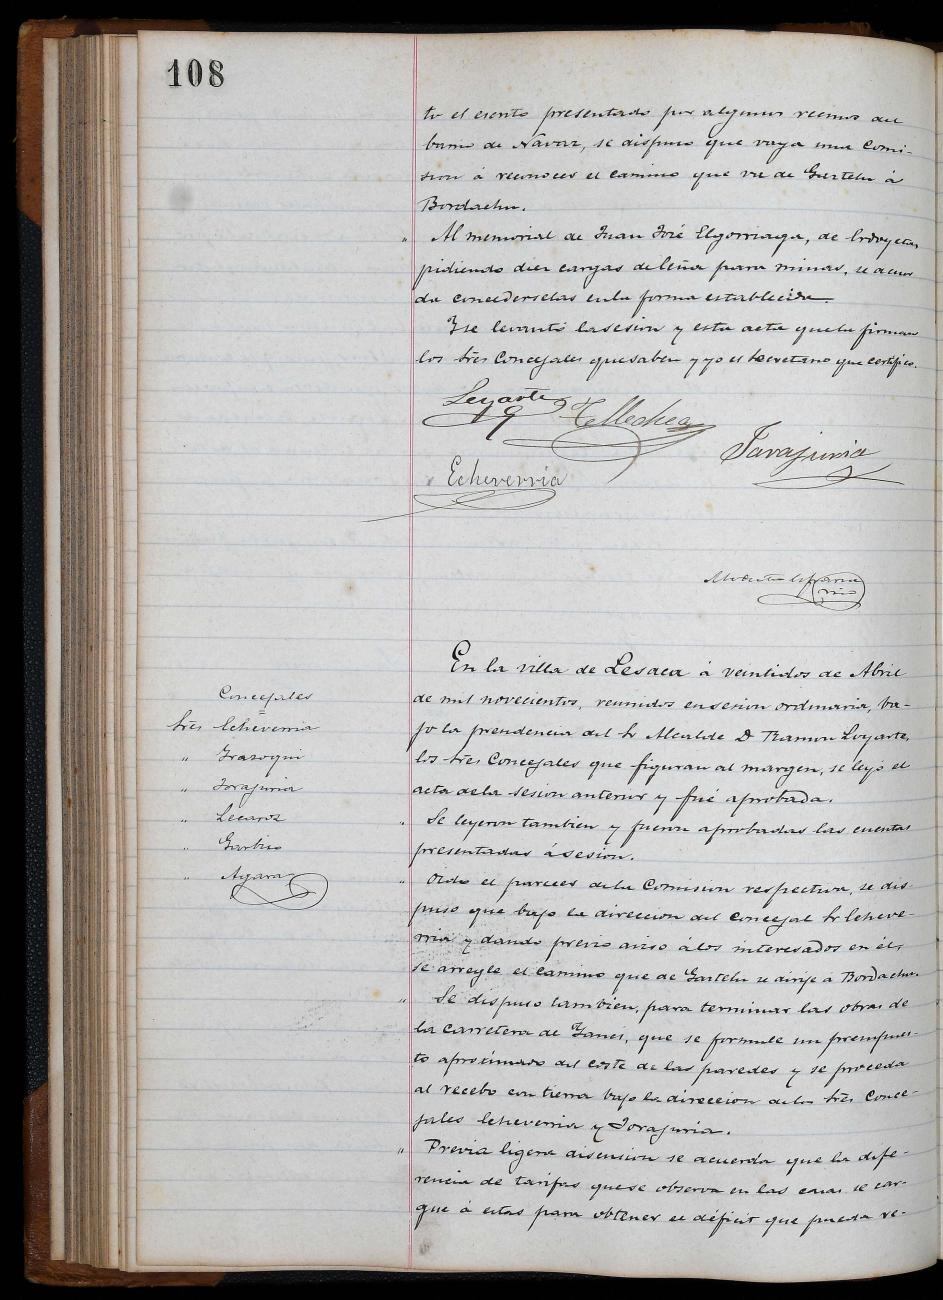 108
to el escrito presentado por algunos vecinos del
barrio de Navaz, se dispuso que vaya una Comi-
sion á reconocer el camino que va de Gartelu á
Bordachu.
" Al memorial de Juan José Elgorriaga, de Endoyeta,
pidiendo diez cargas de leña para minas, se acuer
da concederselas en la forma establecida.
Y se levantó la sesion y esta acta que la firman
los Sres Concejales que saben y yo el Secretario que certifico.
Loyarte
Tellechea
Tarajunia
Echeverria
En la villa de Lesaca á veintidos de Abril
de mil novecientos, reunidos en sesion ordinaria, ba-
jo la presidencia del Sr Alcalde D Ramon Loyarte,
los Sres Concejales que figuran al margen, se leyó el
acta de la sesion anterior y fué aprobada.
Concejales
Sres Echeverria
" Irazoqui
" Torajunia
" Lecaroz
" Garbiso
" Agara
" Se leyeron tambien y fueron aprobadas las cuentas
presentadas á sesion.
" Oido el parecer de la Comision respectiva, se dis-
puso que bajo la direccion del concejal Sr Echeve-
rria y dando previo aviso á los interesados en él,
se arregle el camino que de Gartelu se dirije á Bordachu.
" Se dispuso tambien, para terminar las obras de
la carretera de Yanci, que se formule un presupues-
to aproximado del coste de las paredes y se proceda
al recebo con tierra bajo la direccion de los Sres Conce-
jales Echeverria y Torajuria.
" Previa ligera discusion se acuerda que la dife-
rencia de tarifas que se observa en las casas se car-
gue á estas para obtener el déficit que pueda re-